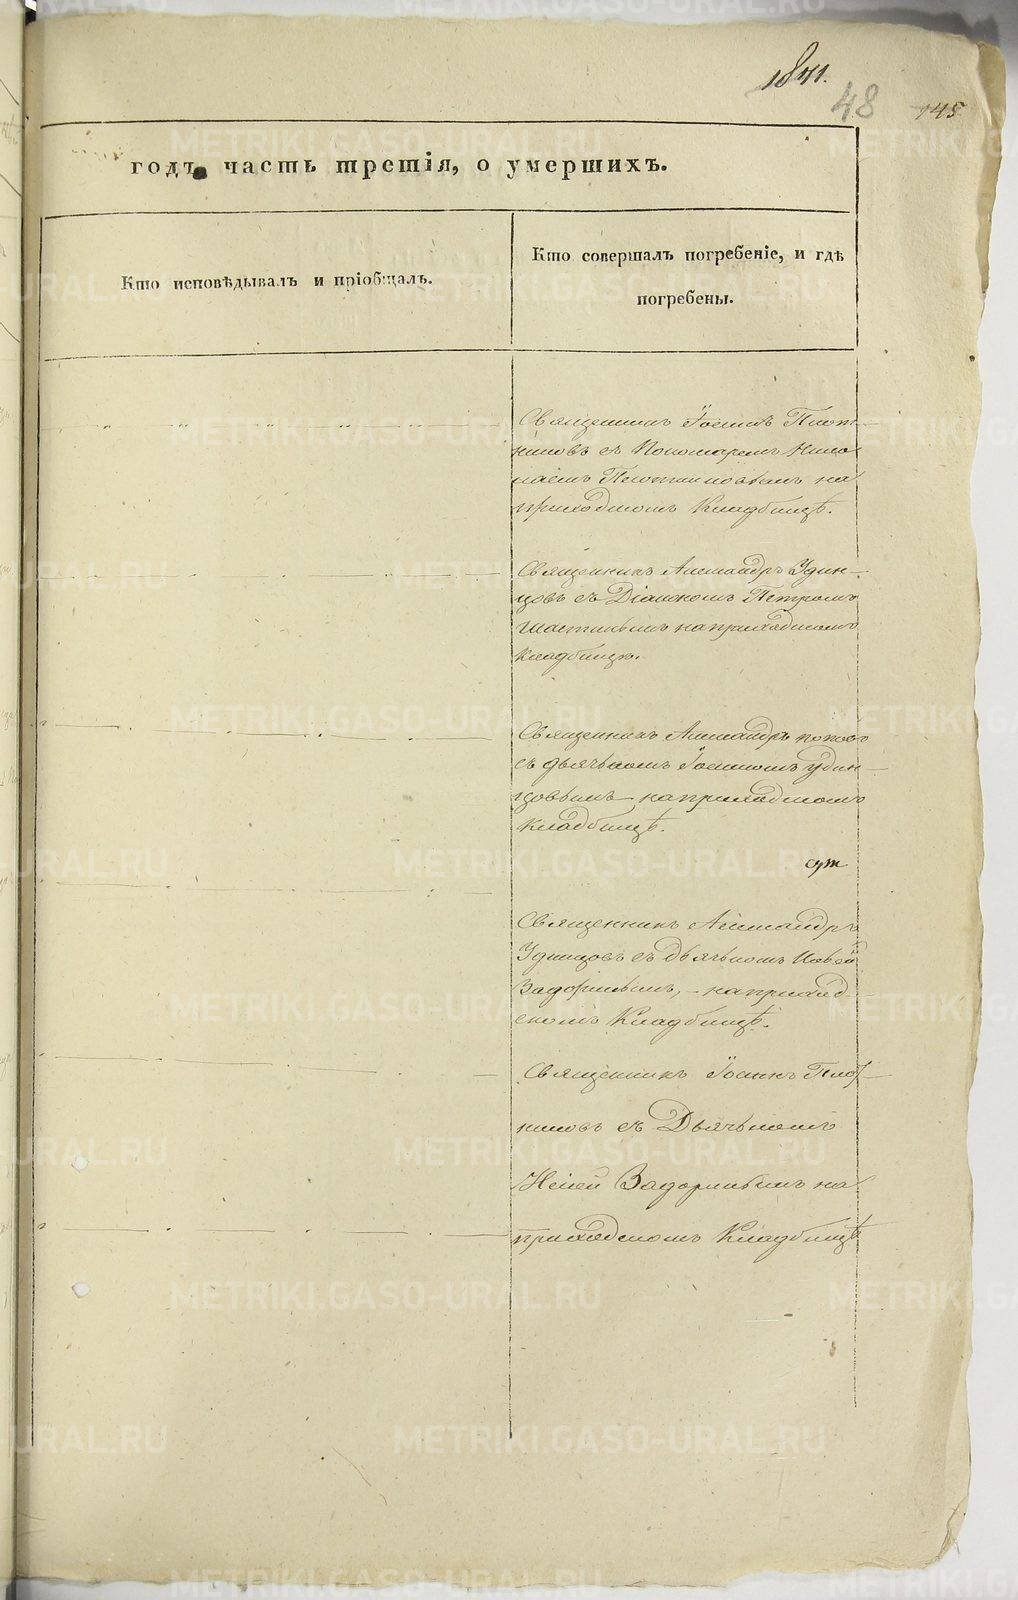 1841.
48
145
годъ часть третія, о умершихъ.
Кто исповѣдывалъ и пріобщалъ.
Кто совершалъ погребеніе, и гдѣ
погребены.
Священникъ Іоаннъ Плот-
никовъ съ Пономаремъ Нико
лаемъ Плотниковымъ на
приходскомъ Кладбищѣ.
Священникъ Александръ Удин-
цовъ съ Діакономъ Петромъ
на приходскомъ
Кладбищѣ.
Священникъ Александръ Поповъ
съ дьячькомъ Іоанномъ Удин-
цовымъ на приходскомъ
Кладбищѣ.
Священникъ Александръ
Удинцовъ съ Дьячькомъ
Задоринымъ, на приход-
скомъ Кладбищѣ.
Священникъ Іоаннъ Плот-
никовъ съ Дьячькомъ
Задоринымъ на
приходскомъ Кладбищѣ
METRIKI.GASO-URAL.RU